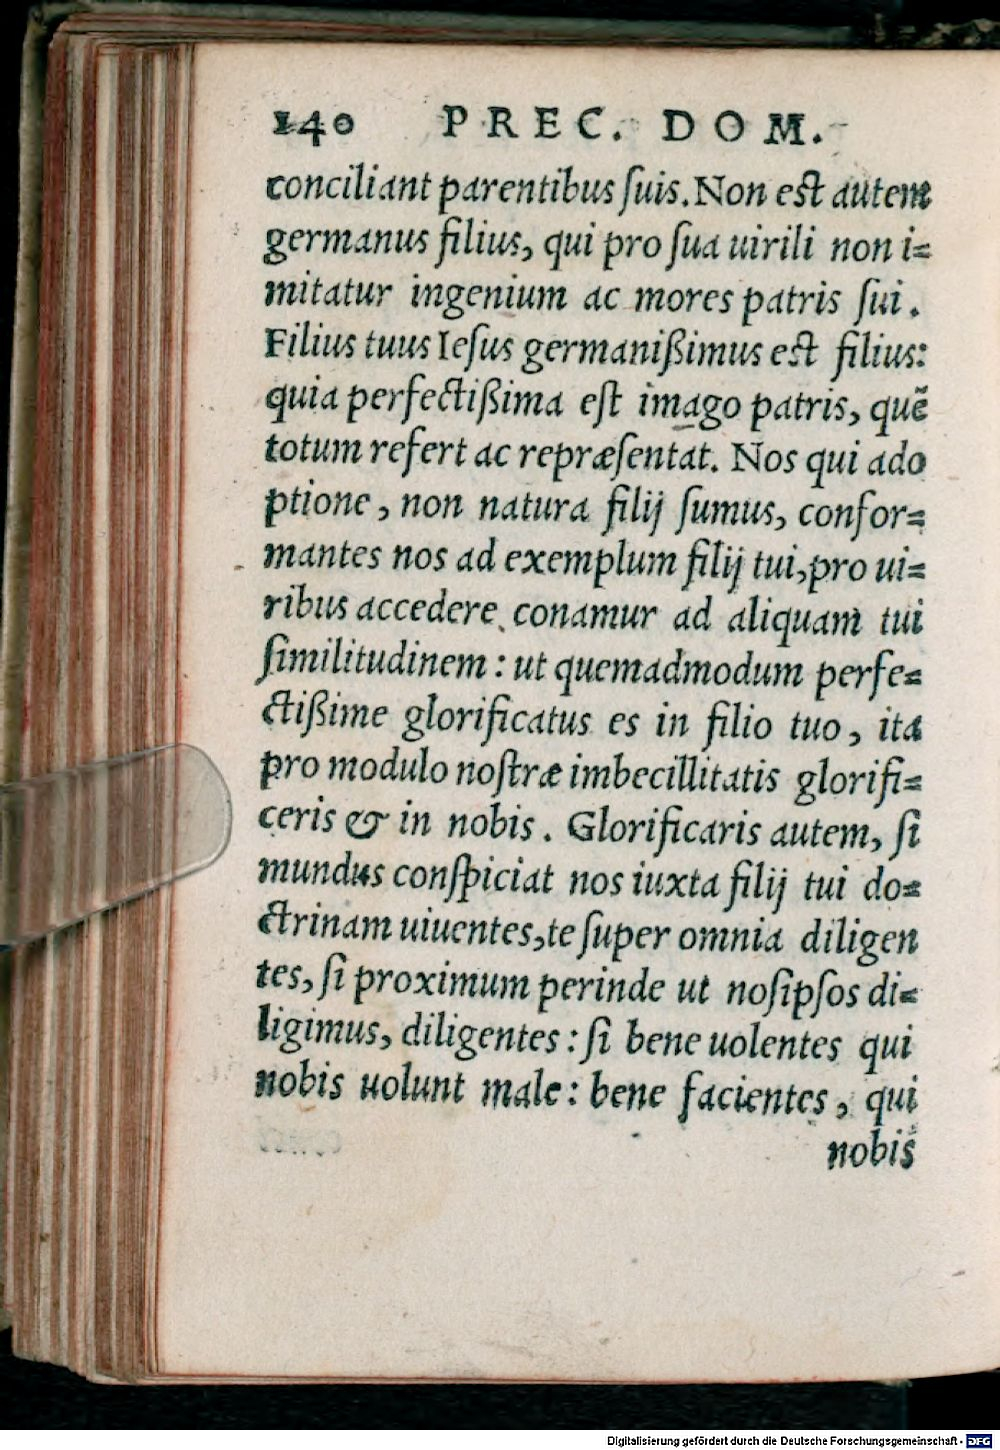 140 PREC. DOM.
conciliant parentibus ſuis. Non est autem
germanus filius, qui pro ſua uirili non i=
mitatur ingenium ac mores patris ſui.
Filius tuus Ieſus germanißimus est filius:
quia perfectißima eſt imago patris, quẽ
totum refert ac repræſentat. Nos qui ado
ptione, non natura filij ſumus, confor=
mantes nos ad exemplum filij tui, pro ui=
ribus accedere conamur ad aliquam tui
ſimilitudinem: ut quemadmodum perfe=
ctißime glorificatus es in filio tuo, ita
pro modulo noſtræ imbecillitatis glorifi=
ceris & in nobis. Glorificaris autem, ſi
mundus conſpiciat nos iuxta filij tui do=
ctrinam uiuentes, te ſuper omnia diligen
tes, ſi proximum perinde ut noſipſos di=
ligimus, diligentes: ſi bene uolentes qui
nobis uolunt male: bene facientes, qui
nobis
Digitalisierung gefördert durch die Deutsche Forschungsgemeinschaft - DFG